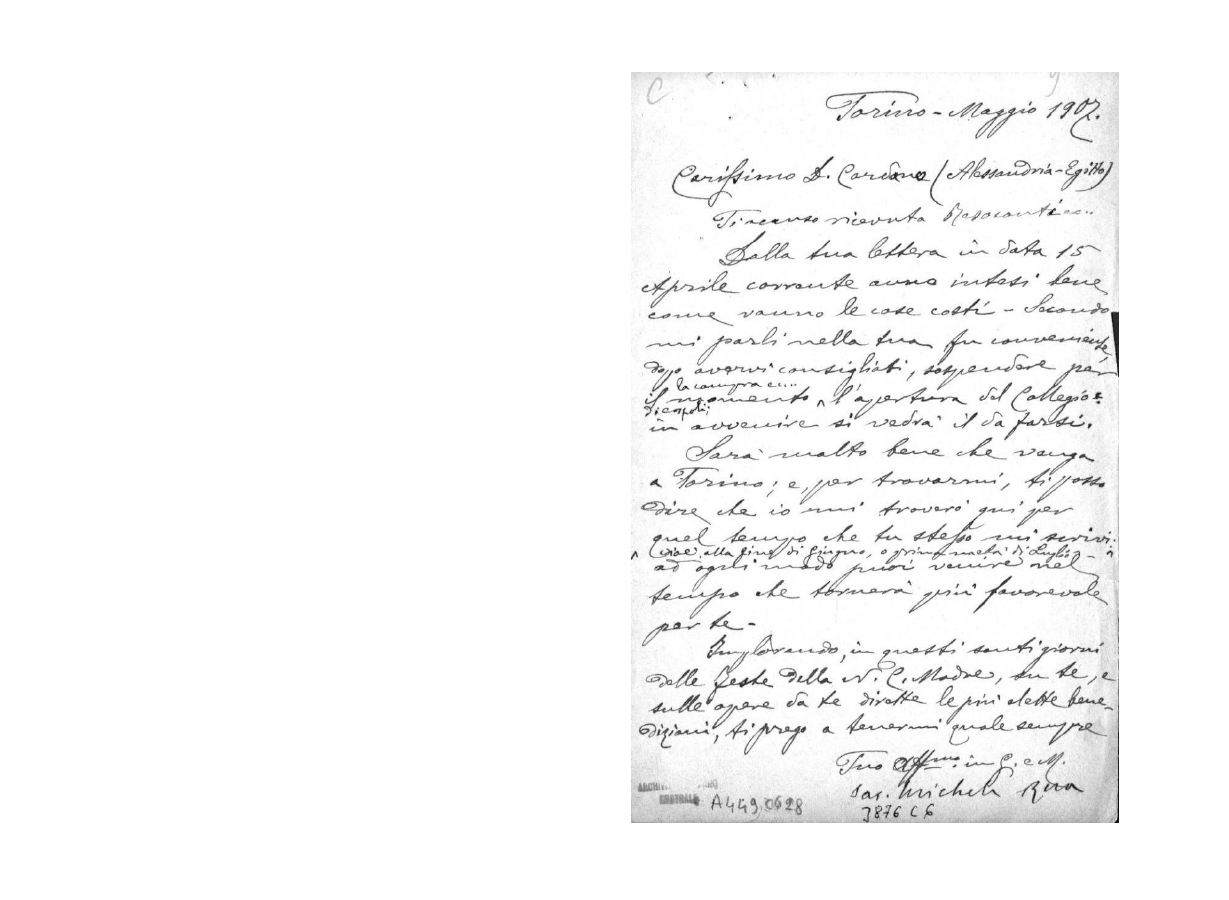 C
Torino - Maggio 1907.
Carissimo D. Cardano (Alessandria-Egitto)
Ti accuso ricevuta
Dalla tua lettera in data 15
Aprile corrente anno intesi bene
come vanno le cose costì - Secondo
mi parli nella tua fu conveniente,
dopo avervi consigliati, sospendere per
la compra ecc...
il momento ^ l'apertura del Collegio:
in avvenire si vedrà il da farsi.
Sarà molto bene che venga
a Torino; e, per trovarmi, ti posso
dire che io mi troverò qui per
quel tempo che tu stesso mi scrivi:
(cioè alla fine di Giugno, o prima metà di Luglio -
ad ogni modo puoi venire nel
tempo che tornerà più favorevole
per te -
Implorando, in questi santi giorni
delle feste della N. C. Madre, su te, e
sulle opere da te dirette le più elette bene-
dizioni, ti prego a tenermi quale sempre
Tuo Affmo. in G. e M.
Sac. Michele Rua
CENTRALE A449.0628
3876 C6